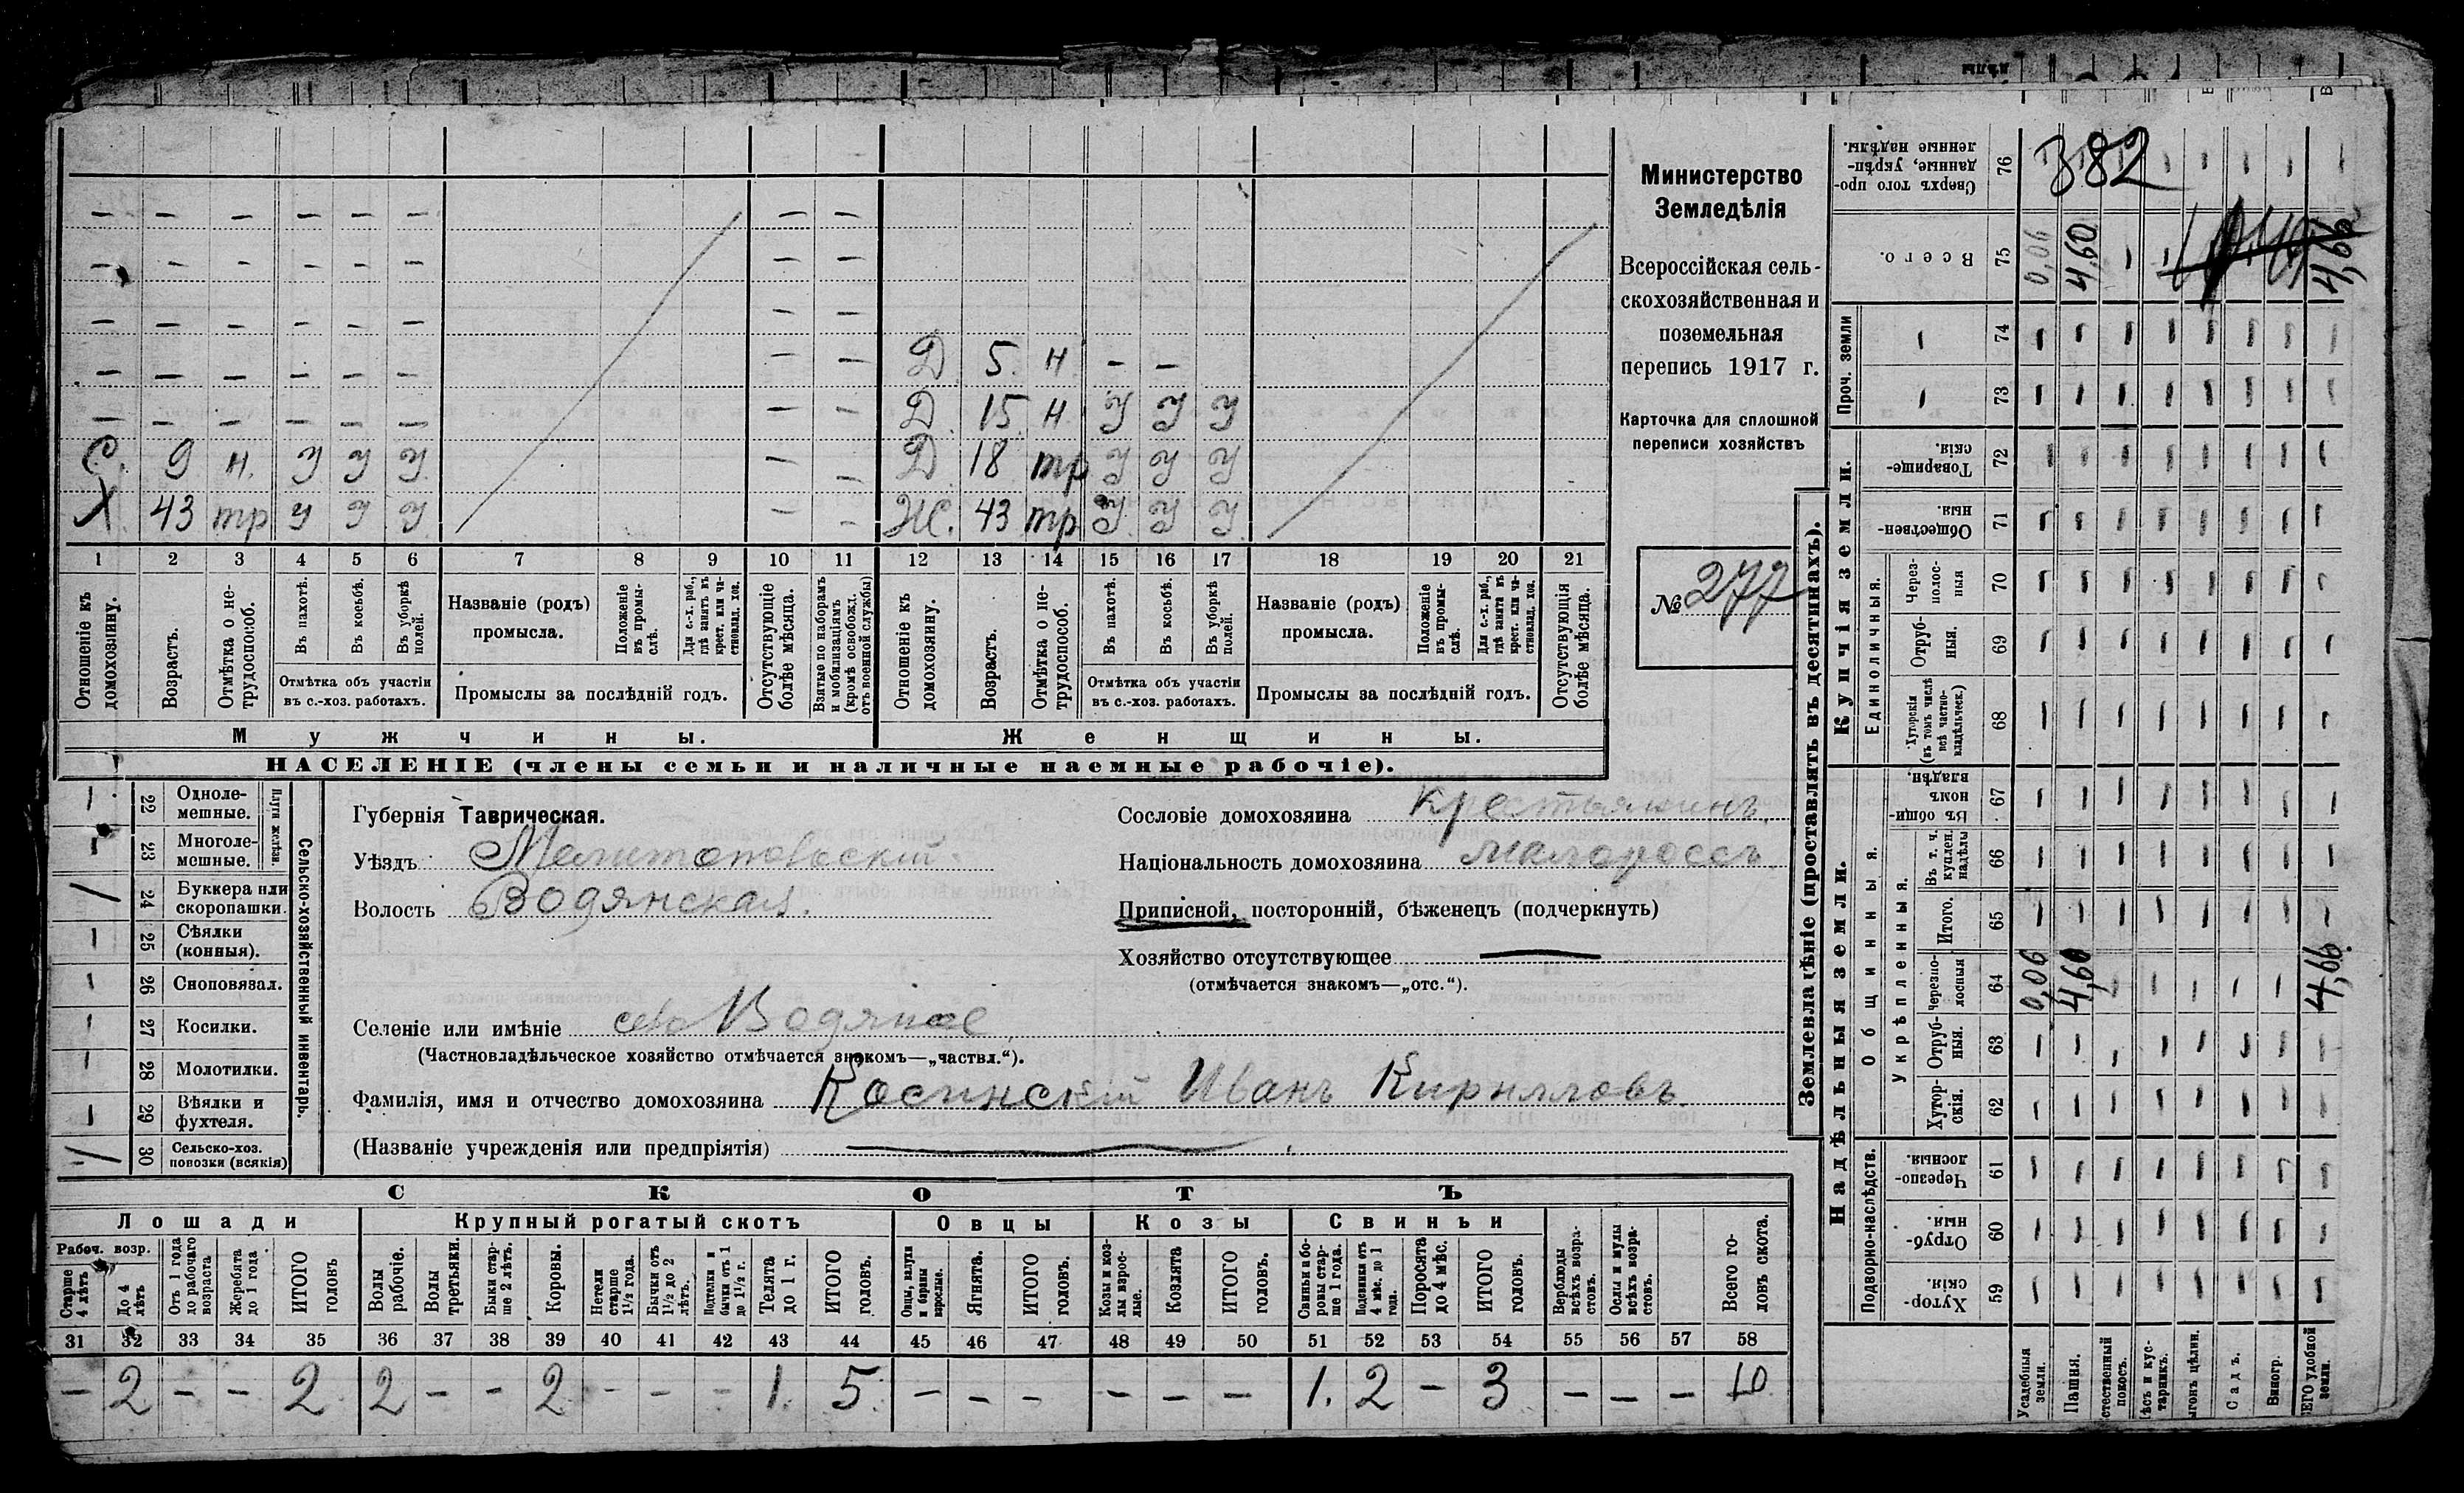 — — — — — — — —
— — — — — — — —
— — — — — — — —
— — — — — — — — Д 5 н — —
— — — — — — — — Д 15 н У У У
С. 9 н. У У У — — Д 18 тр У У У
Х 43 тр у У У — — Ж. 43 тр У У У
1 2 3 4 5 6 7 8 9 10 11 12 13 14 15 16 17 18 19 20 21
Отношеніе къ домохозяину.
Возрастъ.
Отмѣтка о нетрудоспособ.
Въ пахотѣ.
Въ косьбѣ.
Въ уборкѣ полей.
Отмѣтка объ участіи
въ с.-хоз. работахъ.
Названіе (родъ)
промысла.
Положеніе въ промыслѣ.
Для с.-х. раб., гдѣ занятъ въ крест. или частновлад. хоз.
Промыслы за послѣдній годъ.
Отсутствующіе болѣе мѣсяца.
Взятые по наборамъ и мобилизаціямъ (кромѣ освобожд. отъ военной службы)
Отношеніе къ домохозяину.
Возрастъ.
Отмѣтка о нетрудоспособ.
Въ пахотѣ.
Въ косьбѣ.
Въ уборкѣ полей.
Отмѣтка объ участіи
въ с.-хоз. работахъ.
Названіе (родъ)
промысла.
Положеніе въ промыслѣ.
Для с.-х. раб., гдѣ занята въ крест. или частновлад. хоз.
Промыслы за послѣдній годъ.
Отсутствующія болѣе мѣсяца.
Мужчины.
Женщины.
НАСЕЛЕНІЕ (члены семьи и наличные наемные рабочіе).
Министерство
Земледѣлія
Всероссійская сель-
скохозяйственная и
поземельная
перепись 1917 г.
Карточка для сплошной
переписи хозяйствъ
№ 277
Сельско-хозяйственный инвентарь.
Плуги желѣзн.
22 Одноле-
мешные.
23 Многоле-
мешные.
24 Буккера или
скоропашки.
25 Сѣялки
(конныя).
26 Сноповязал.
27 Косилки.
28 Молотилки.
29 Вѣялки и
фухтеля.
30 Сельско-хоз.
повозки (всякія)
Губернія Таврическая.
Уѣздъ Мелитопольскій
Волость Водянская.
Сословіе домохозяина Крестьянинъ.
Національность домохозяина малороссъ
Приписной, посторонній, бѣженецъ (подчеркнуть)
Хозяйство отсутствующее —
(отмѣчается знакомъ—„отс.“).
Селеніе или имѣніе село Водяное
(Частновладѣльческое хозяйство отмѣчается знакомъ—„частвл.“).
Фамилія, имя и отчество домохозяина Косинскій Иванъ Кирилловъ.
(Названіе учрежденія или предпріятія) —
СКОТЪ
Лошади
Крупный рогатый скотъ
Овцы
Козы
Свиньи
Рабоч. возр.
Старше 4 лѣтъ
до 4 лѣтъ
Отъ 1 года до рабочаго возраста
Жеребята до 1 года
ИТОГО головъ
Волы рабочіе.
Волы третьяки.
Быки старше 2 лѣтъ.
Коровы.
Нетели старше 1½ года.
Бычки отъ 1½ до 2 лѣтъ.
Подтелки и бычки отъ 1 до 1½ г.
Телята до 1 г.
ИТОГО головъ.
Овцы, валухи и бараны взрослые.
Ягнята.
ИТОГО головъ.
Козы и козлы взрослые.
Козлята
ИТОГО головъ.
Свиньи и боровы старше 1 года.
Подсвинки отъ 4 мѣс. до 1 года.
Поросята до 4 мѣс.
ИТОГО головъ.
Верблюды всѣхъ возрастовъ.
Ослы и мулы всѣхъ возрастовъ.
Всего головъ скота.
31 32 33 34 35 36 37 38 39 40 41 42 43 44 45 46 47 48 49 50 51 52 53 54 55 56 57 58
— 2 — — 2 2 — — 2 — — — 1. 5. — — — — — — 1. 2 — 3 — — — 10
Землевладѣніе (проставлять въ десятинахъ).
Надѣльныя земли.
Купчія земли.
Проч. земли
Подворно-наслѣдств.
Общинныя.
Укрѣпленныя.
Единоличныя.
76 Сверхъ того проданные, укрѣпленные надѣлы. 382
75 Всего. 0,06 4,60 4,66
74
73
72 Товарищескія.
71 Общественныя.
70 Черезполосныя
69 Отрубныя.
68 Хуторскія (въ томъ числѣ всѣ частновладѣльческ.)
67 Въ общиномъ владѣн.
66 Въ т. ч. куплен. надѣлы
65 Итого.
64 Черезполосныя 0,06 4,60 4,66
63 Отрубныя.
62 Хуторскія.
61 Черезполосныя.
60 Отрубныя.
59 Хуторскія.
Усадебныя земли.
Пашня.
стественный покосъ.
ѣсъ и кустарникъ.
ыгонъ цѣлин.
Садъ.
Виногр.
СЕГО удобной земли.